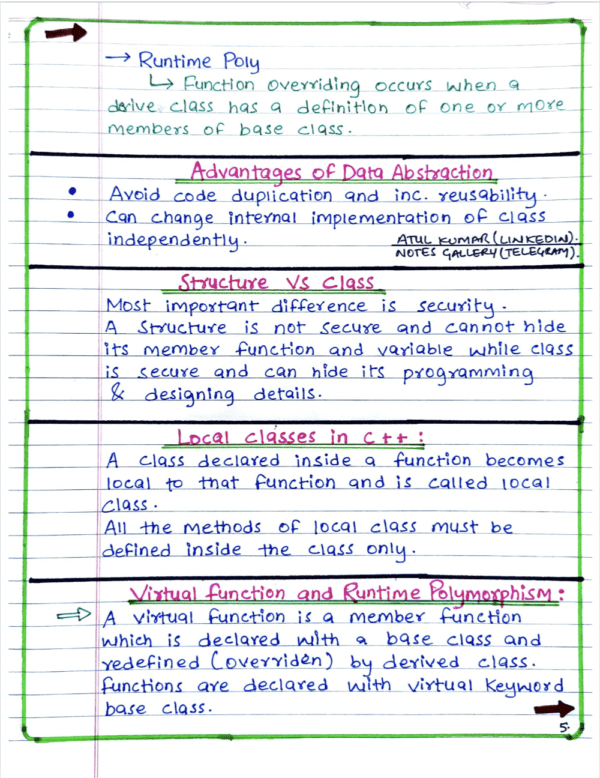 → Runtime Poly
↳ Function overriding occurs when a
derive class has a definition of one or more
members of base class.
Advantages of Data Abstraction
• Avoid code duplication and inc. reusability.
• Can change internal implementation of class
independently.
ATUL KUMAR (LINKEDIN).
NOTES GALLERY (TELEGRAM).
Structure Vs Class
Most important difference is security.
A Structure is not secure and cannot hide
its member function and variable while class
is secure and can hide its programming
& designing details.
Local classes in C++ :
A class declared inside a function becomes
local to that function and is called local
class.
All the methods of local class must be
defined inside the class only.
Virtual function and Runtime Polymorphism :
⇒ A virtual function is a member function
which is declared with a base class and
redefined (overriden) by derived class.
functions are declared with virtual keyword
base class.
5.